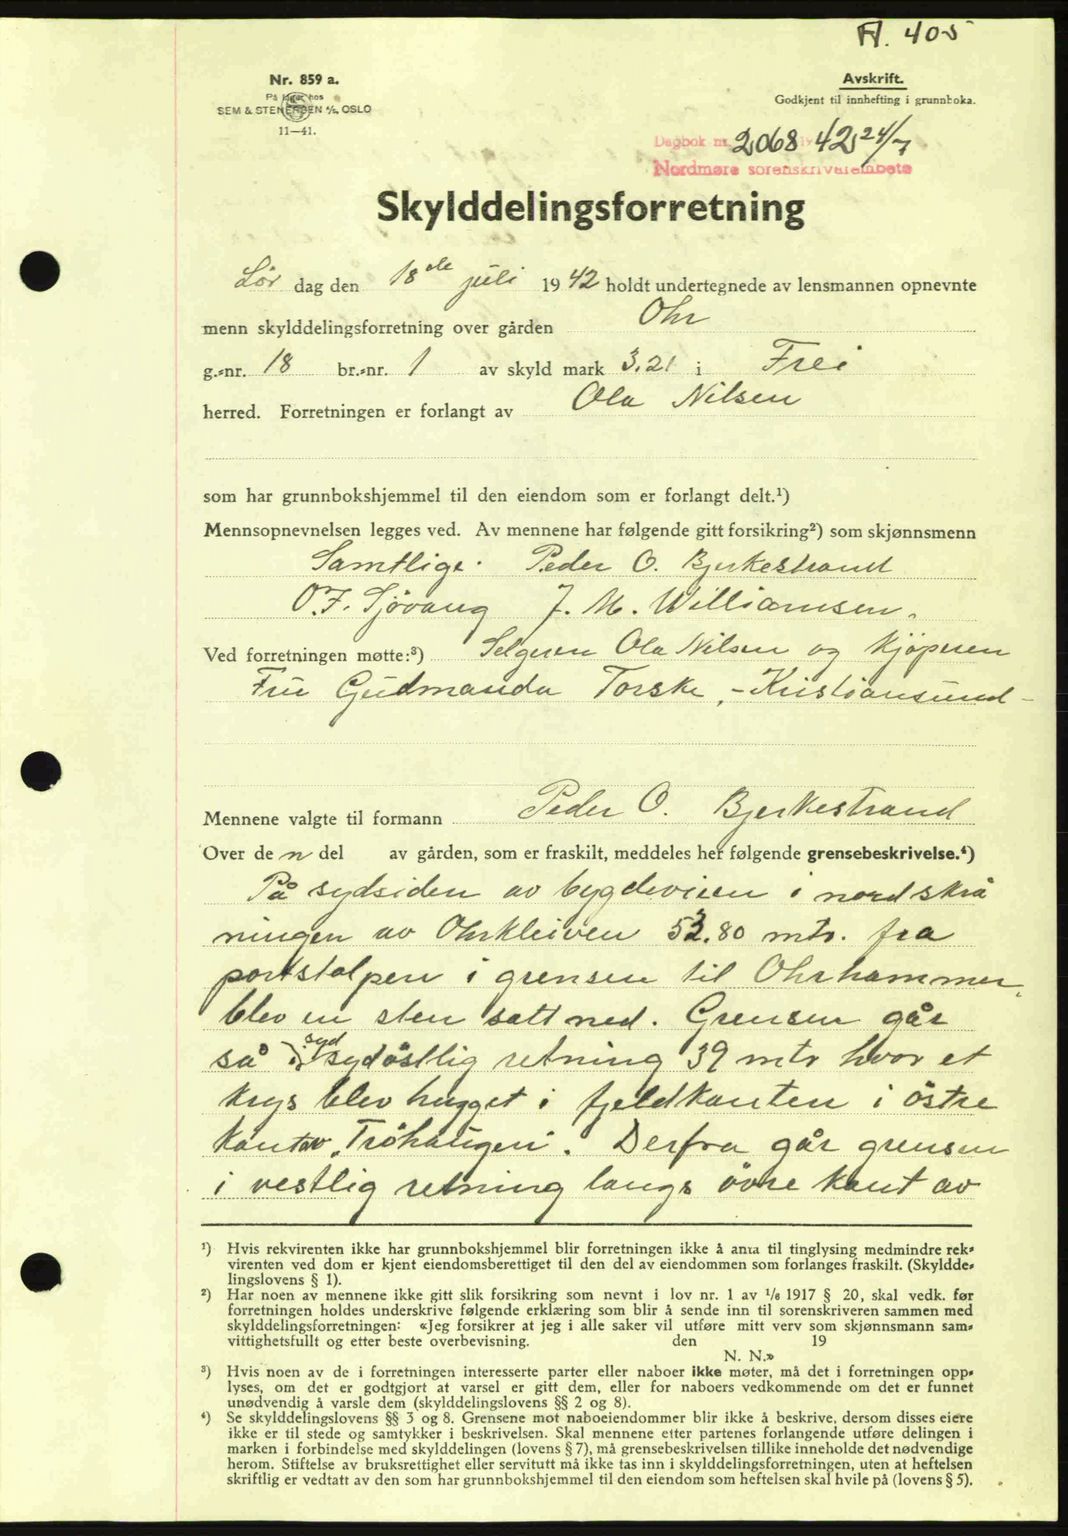 A. 405
Nr. 859 a.
På lager hos
SEM & STENERSEN A/S, OSLO
11—41.
Avskrift.
Godkjent til innhefting i grunnboka.
Dagbok nr. 2068 1942 24/7
Nordmøre sorenskriverembete
Skylddelingsforretning
Lør dag den 18de juli 1942 holdt undertegnede av lensmannen opnevnte
menn skylddelingsforretning over gården Ohr
g.-nr. 18 br.-nr. 1 av skyld mark 3.21 i Frei
herred. Forretningen er forlangt av Ola Nilsen
som har grunnbokshjemmel til den eiendom som er forlangt delt.¹)
Mennsopnevnelsen legges ved. Av mennene har følgende gitt forsikring²) som skjønnsmenn
Samtlige. Peder O. Bjerkestrand
O.F. Sjövang J. M. Williamsen.
Ved forretningen møtte:³) Selgeren Ola Nilsen og kjöperen
Fru Gudmanda Torske, - Kristiansund -
Mennene valgte til formann Peder O. Bjerkestrand
Over de n del av gården, som er fraskilt, meddeles her følgende grensebeskrivelse.⁴)
På sydsiden av bygdeveien i nordskrå
ningen av Ohrkleiven 53.80 mtr. fra
portstolpen i grensen til Ohrhammer,
blev en sten satt ned. Grensen går
så i syd sydöstlig retning 39 mtr hvor et
krys blev hugget i fjeldkanten i östre
kant av „Tröhaugen". Derfra går grensen
i vestlig retning langs övre kant av
¹) Hvis rekvirenten ikke har grunnbokshjemmel blir forretningen ikke å anta til tinglysing medmindre rek-
virenten ved dom er kjent eiendomsberettiget til den del av eiendommen som forlanges fraskilt. (Skyldde-
lingslovens § 1).
²) Har noen av mennene ikke gitt slik forsikring som nevnt i lov nr. 1 av 1/6 1917 § 20, skal vedk. før
forretningen holdes underskrive følgende erklæring som blir å sende inn til sorenskriveren sammen med
skylddelingsforretningen: «Jeg forsikrer at jeg i alle saker vil utføre mitt verv som skjønnsmann sam-
vittighetsfullt og etter beste overbevisning. den 19
N. N.»
³) Hvis noen av de i forretningen interesserte parter eller naboer ikke møter, må det i forretningen opp-
lyses, om det er godtgjort at varsel er gitt dem, eller for naboers vedkommende om det er funnet
unødvendig å varsle dem (skylddelingslovens §§ 2 og 8).
⁴) Se skylddelingslovens §§ 3 og 8. Grensene mot naboeiendommer blir ikke å beskrive, dersom disses eiere
ikke er til stede og samtykker i beskrivelsen. Skal mennene etter partenes forlangende utføre delingen i
marken i forbindelse med skylddelingen (lovens § 7), må grensebeskrivelsen tillike inneholde det nødvendige
herom. Stiftelse av bruksrettighet eller servitutt må ikke tas inn i skylddelingsforretningen, uten at heftelsen
skriftlig er vedtatt av den som har grunnbokshjemmel til den eiendom som heftelsen skal hvile på (lovens § 5).